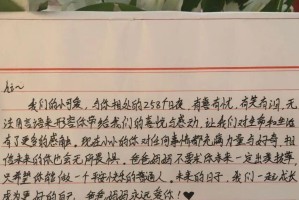 ~
我们的小可爱，与你相处的258个日夜，有喜有忧，有笑有泪，无
法用言语来形容你带给我们的喜悦与感动，让我们对生命和生活
有了更多的感触，现在小小的你对任何事情都充满力量与好奇，相
信未来的你也会无所畏惧。爸爸妈妈不要求你未来一定出类拔萃，
只希望你能做一个平安快乐的普通人，未来的日子，我们一起成长
成为更好的自己，爸爸妈妈永远爱你！♥